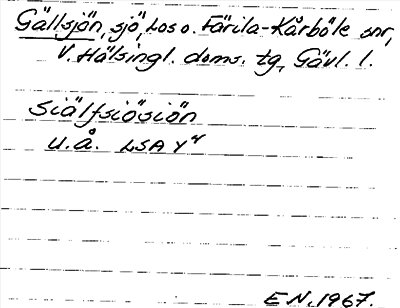 Gällsjön, sjö, Los o. Färila-Kårböle snr,
V. Hälsingl. doms. tg, Gävl. l.
Siälfsiösiön
u.å. LSA Y4
E N. 1967.